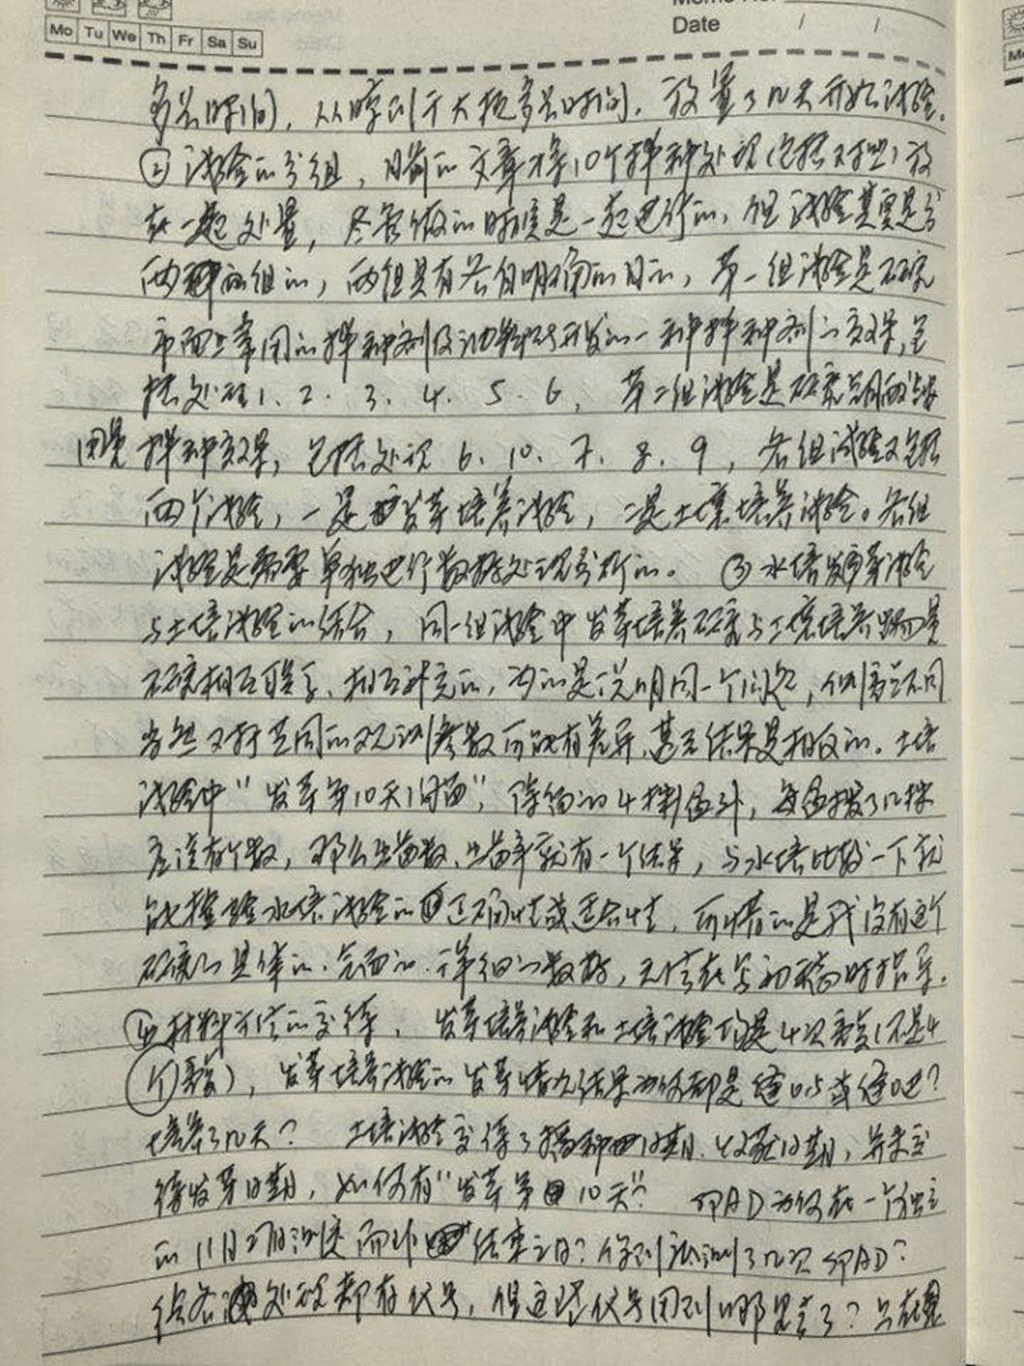 Mo Tu We Th Fr Sa Su
Date / /
多长时间，从晾到干大概多长时间，放置了几天开始试验。
②试验的分组，目前的文章将10个拌种处理（包括对照）放
在一起处置，尽管做的时候是一起进行的，但试验其实是分
两组的，两组具有各自明确的目的，第一组试验是研究
市面上常用的拌种剂及开发的一种拌种剂的效果，包
括处理1、2、3、4、5、6，第二组试验是研究
用量拌种效果，包括处理6、10、7、8、9，各组试验又包括
两个试验，一是发芽培养试验，二是土壤培养试验。各组
试验是需要单独进行数据处理分析的。 ③水培发芽试验
与土培试验的结合，同一组试验中发芽培养研究与土壤培养
研究相互联系、相互补充的，目的是说明同一个问题，但不同
当然对于不同的观测参数可能有差异，甚至结果是相反的。土培
试验中“发芽第10天间苗”，待留的4株苗外，每盆拔了几株
应该有个数，那么出苗数、出苗率就有一个结果，与水培比较一下就
能检验水培试验的正确性或适合性，可惜的是我没有这个
研究的具体的、全面的、详细的数据，无法在写初稿时指导。
④材料方法的交待，发芽培养试验和土培试验均是4次重复（不是4
个重复），发芽培养试验的发芽情况结果为何都是逢0.5或逢0呢？
培养了几天？ 土培试验交待了播种日期、收获日期，并未交
待发芽日期，如何有“发芽第10天”？ SPAD为何在一个独立
的11月27日测定而非结束之日？你到底测了几次SPAD？
给各处理都有代号，但这些代号用到哪里去了？只在